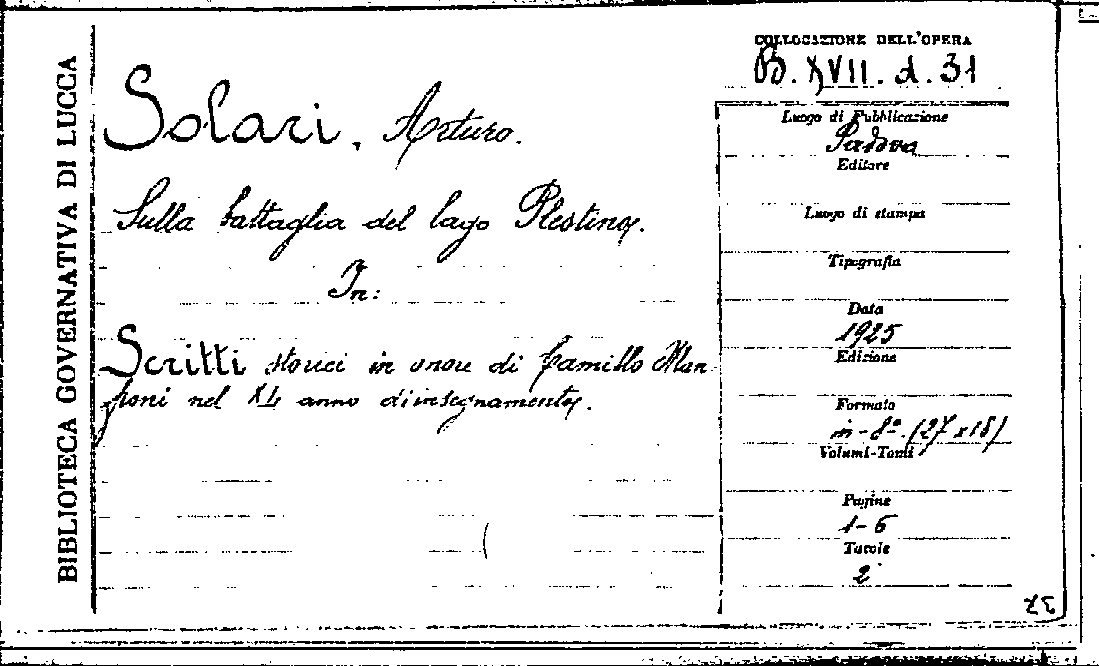 BIBLIOTECA GOVERNATIVA DI LUCCA
COLLOCAZIONE DELL'OPERA
B. XVII. d. 31
Solari, Arturo.
Sulla battaglia del lago Plestino.
In:
Scritti storici in onore di Camillo Man-
froni nel XL anno d'insegnamento.
Luogo di Pubblicazione
Padova
Editore
Luogo di stampa
Tipografia
Data
1925
Edizione
Formato
in-8º. (27x18)
Volumi-Tomi
Pagine
1-6
Tavole
2